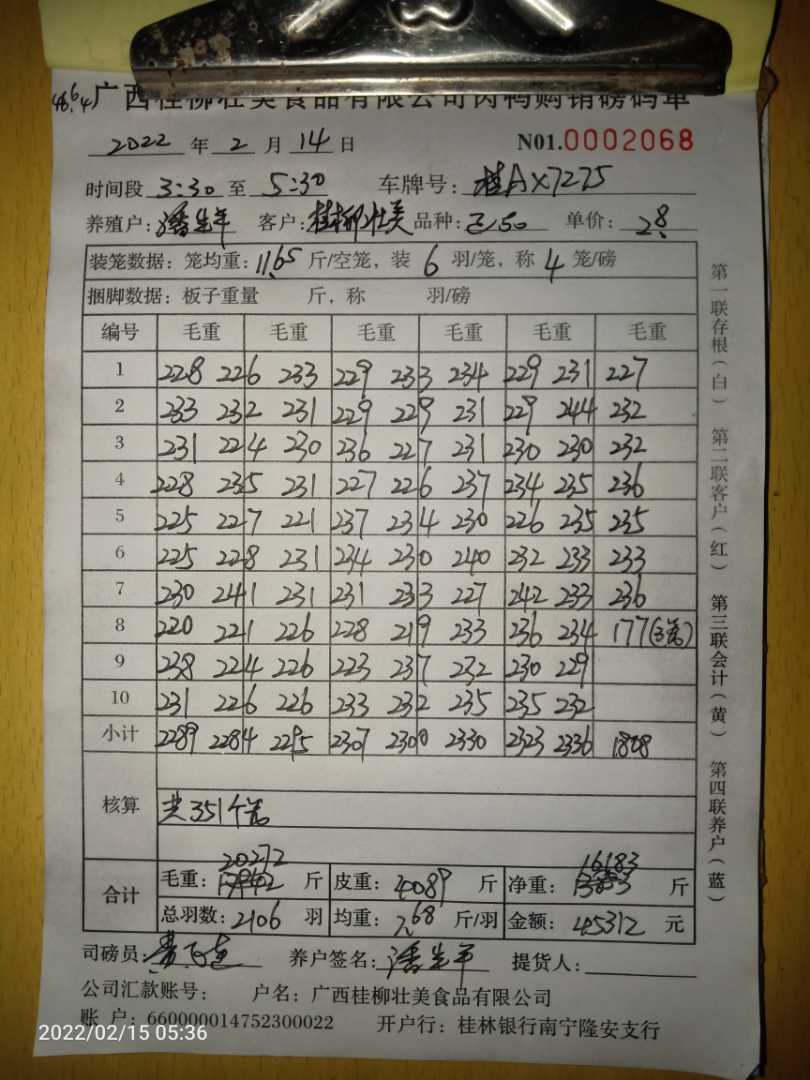 46.64 广西桂柳壮美食品有限公司肉鸭购销磅码单
2022 年 2 月 14 日 N01.0002068
时间段 3:30 至 5:30 车牌号: 桂AX7275
养殖户: 潘生年 客户: 桂柳壮美 品种: 单价: 2.8
装笼数据: 笼均重: 11.65 斤/空笼, 装 6 羽/笼, 称 4 笼/磅
捆脚数据: 板子重量 斤, 称 羽/磅
编号 毛重 毛重 毛重 毛重 毛重 毛重
1 228 226 233 229 233 234 229 231 227
2 233 232 231 229 229 231 229 244 232
3 231 224 230 236 227 231 230 230 232
4 228 235 231 227 226 237 234 235 236
5 225 227 221 237 234 230 226 235 235
6 225 228 231 234 230 240 232 233 233
7 230 241 231 231 233 227 242 233 236
8 220 221 226 228 219 233 236 234 177(3笼)
9 238 224 226 223 237 232 230 229
10 231 226 226 233 232 235 235 232
小计 2289 2284 2295 2307 2300 2330 2323 2336 1808
核算 共351个笼
合计
毛重: 20272 斤 皮重: 4089 斤 净重: 16183 斤
总羽数: 2106 羽 均重: 7.68 斤/羽 金额: 45312 元
司磅员: 养户签名: 潘生年 提货人:
公司汇款账号: 户名: 广西桂柳壮美食品有限公司
账 户: 660000014752300022 开户行: 桂林银行南宁隆安支行
第一联存根(白) 第二联客户(红) 第三联会计(黄) 第四联养户(蓝)
2022/02/15 05:36